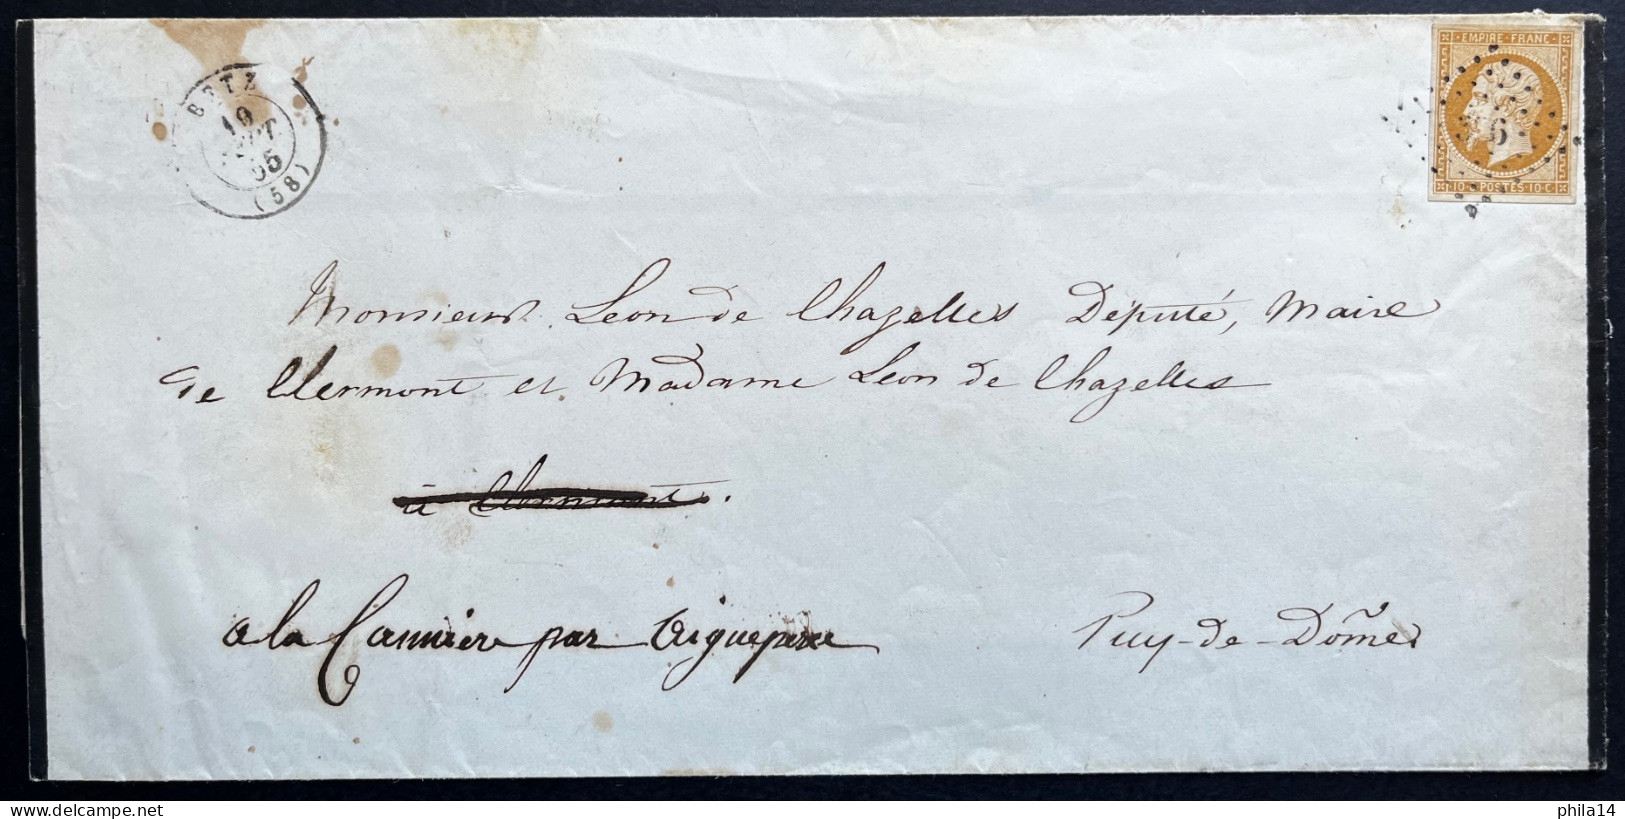 BETZ
19
SEPT
55
(58)
EMPIRE·FRANC·
6
10 POSTES 10 C
Monsieur Léon de Chazelles Député, Maire
de Clermont et Madame Léon de Chazelles
à Clermont.
a la Cannière par Aigueperse
Puy-de-Dôme
www.delcampe.net
phila14